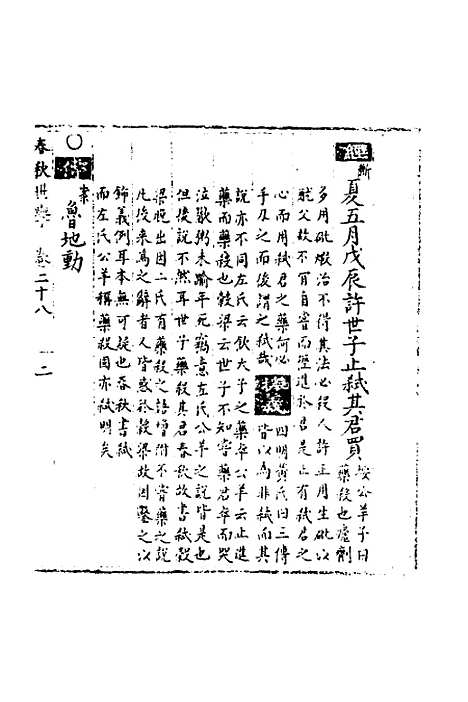 經
斷
夏五月戊辰許世子止弒其君買
按公羊子曰
藥殺也瘧劑
多用砒煅治不得其法必殺人許止用生砒以
弒父故不肯自嘗而遽進於君是止有弒君之
心而用弒君之藥何必
手刃之而後謂之弒哉
四明黃氏曰三傳
皆以為非弒而其
說亦不同左氏云飲大子之藥卒公羊云止進
藥而藥殺也穀梁云世子不知嘗藥君卒而哭
泣歠粥未踰年死竊意左氏公羊之說皆是也
但後說不然耳世子藥殺其君春秋故書弒穀
梁晚出因二氏有藥殺之語增附不嘗藥之說
凡後來為之辭者人皆惑於穀梁故因鑿之以
飾義例耳本無可疑也春秋書弒
而左氏公羊稱藥殺固亦弒明矣
○
魯地動
春秋世學 卷二十八 十二